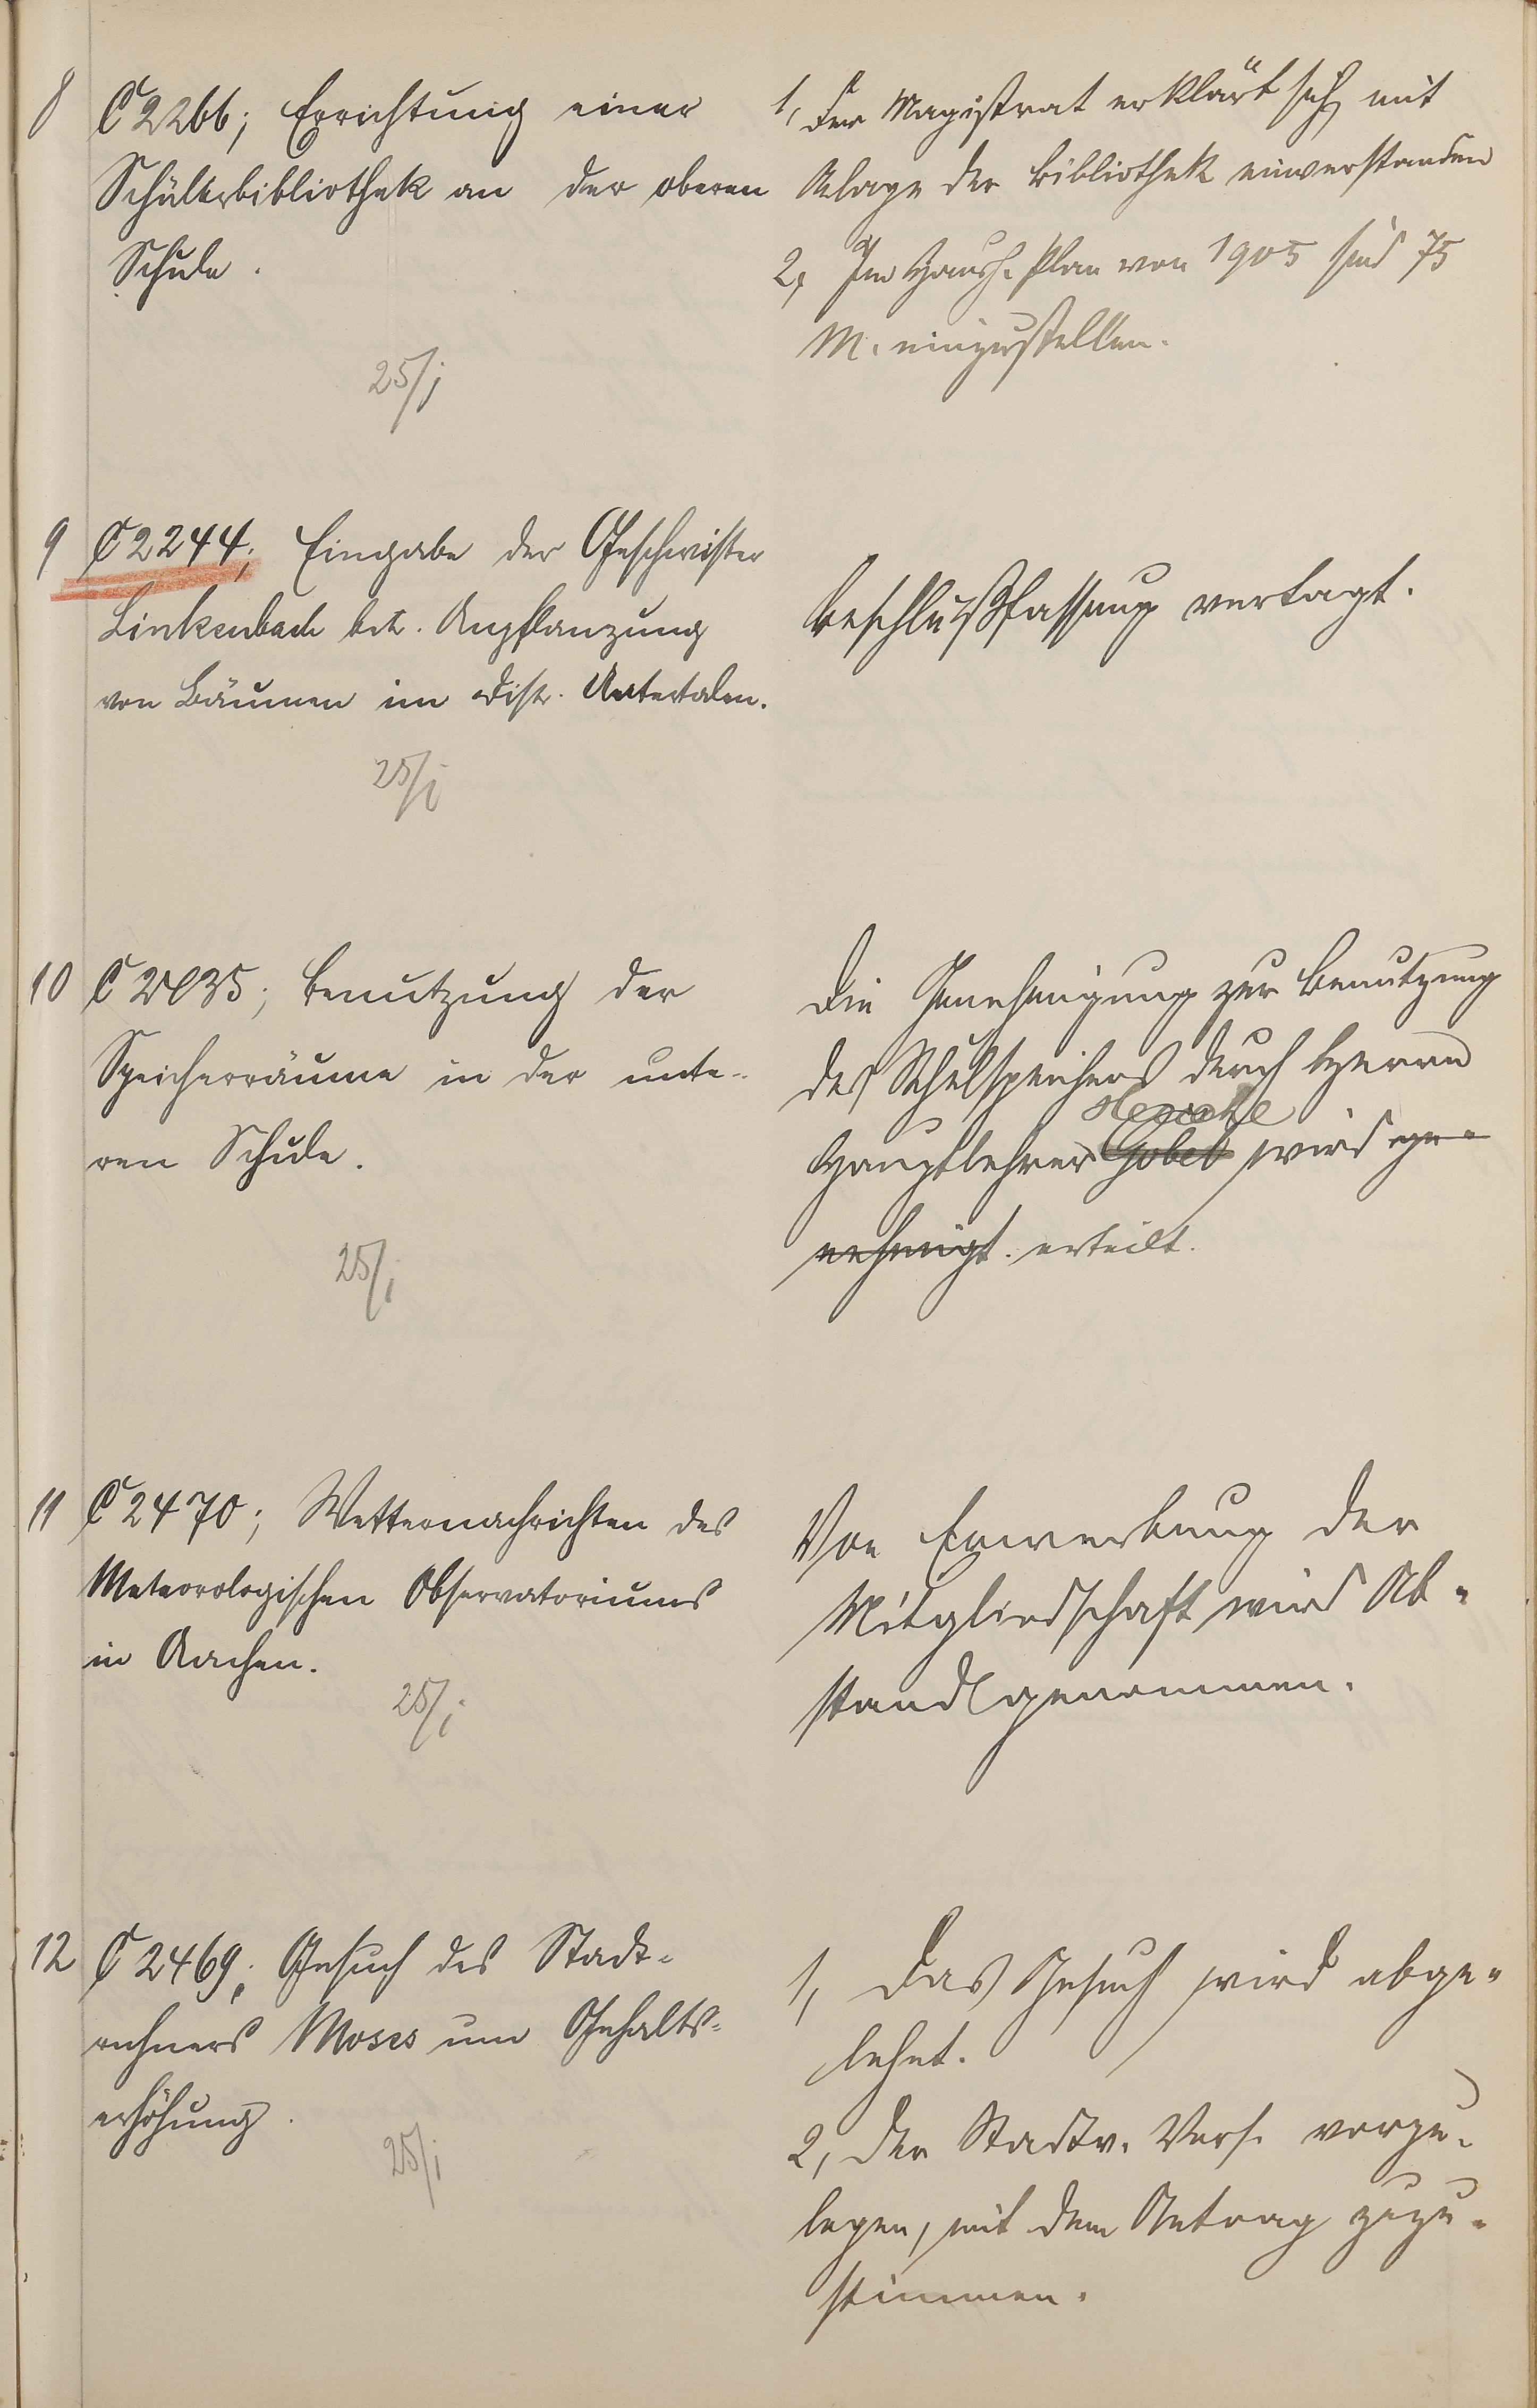 8
C 2266; Errichtung einer
Schülerbibliothek an der oberen
Schule.
25/I
1, Der Magistrat erklärt sich mit
Anlage der Bibliothek einverstanden
2, Im Haush. Plan von 1905 sind 75
M. einzustellen.
9
C 2244; Eingabe der Geschwister
Linkenbach betr. Anpflanzung
von Bäumen im Distr. Untertalen.
25/I
Beschlußfassung vertagt.
10
Benutzung der
Speicherräume in der unte-
ren Schule.
25/I
Die Genehmigung zur Benutzung
des Schulspeichers durch Herrn
Hauptlehrer Gobel wird ge-
nehmigt. erteilt.
11
C 2470; Wetternachrichten des
Meteorologischen Observatoriums
in Aachen.
25/I
Von Erwerbung der
Mitgliedschaft wird Ab-
stand genommen.
12
C 2469; Gesuch des Stadt-
rechners Moses um Gehalts-
erhöhung.
25/I
1, Das Gesuch wird abge-
lehnt.
2, Der Stadtv. Vers. vorzu-
legen, mit dem Antrag zuzu-
stimmen.